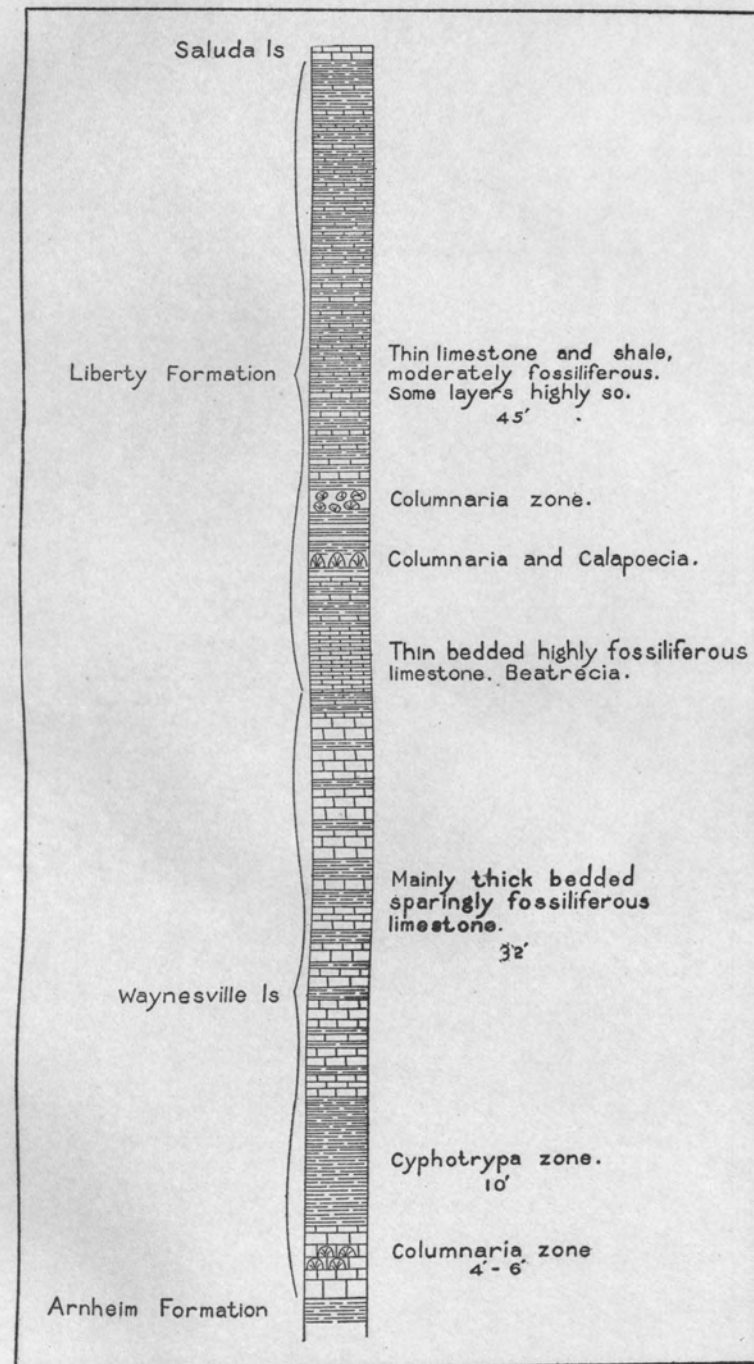 Saluda ls
Liberty Formation
Thin limestone and shale,
moderately fossiliferous.
Some layers highly so.
45'
Columnaria zone.
Columnaria and Calapoecia.
Thin bedded highly fossiliferous
limestone. Beatrecia.
Mainly thick bedded
sparingly fossiliferous
limestone.
32'
Waynesville ls
Cyphotrypa zone.
10'
Columnaria zone
4' - 6'
Arnheim Formation